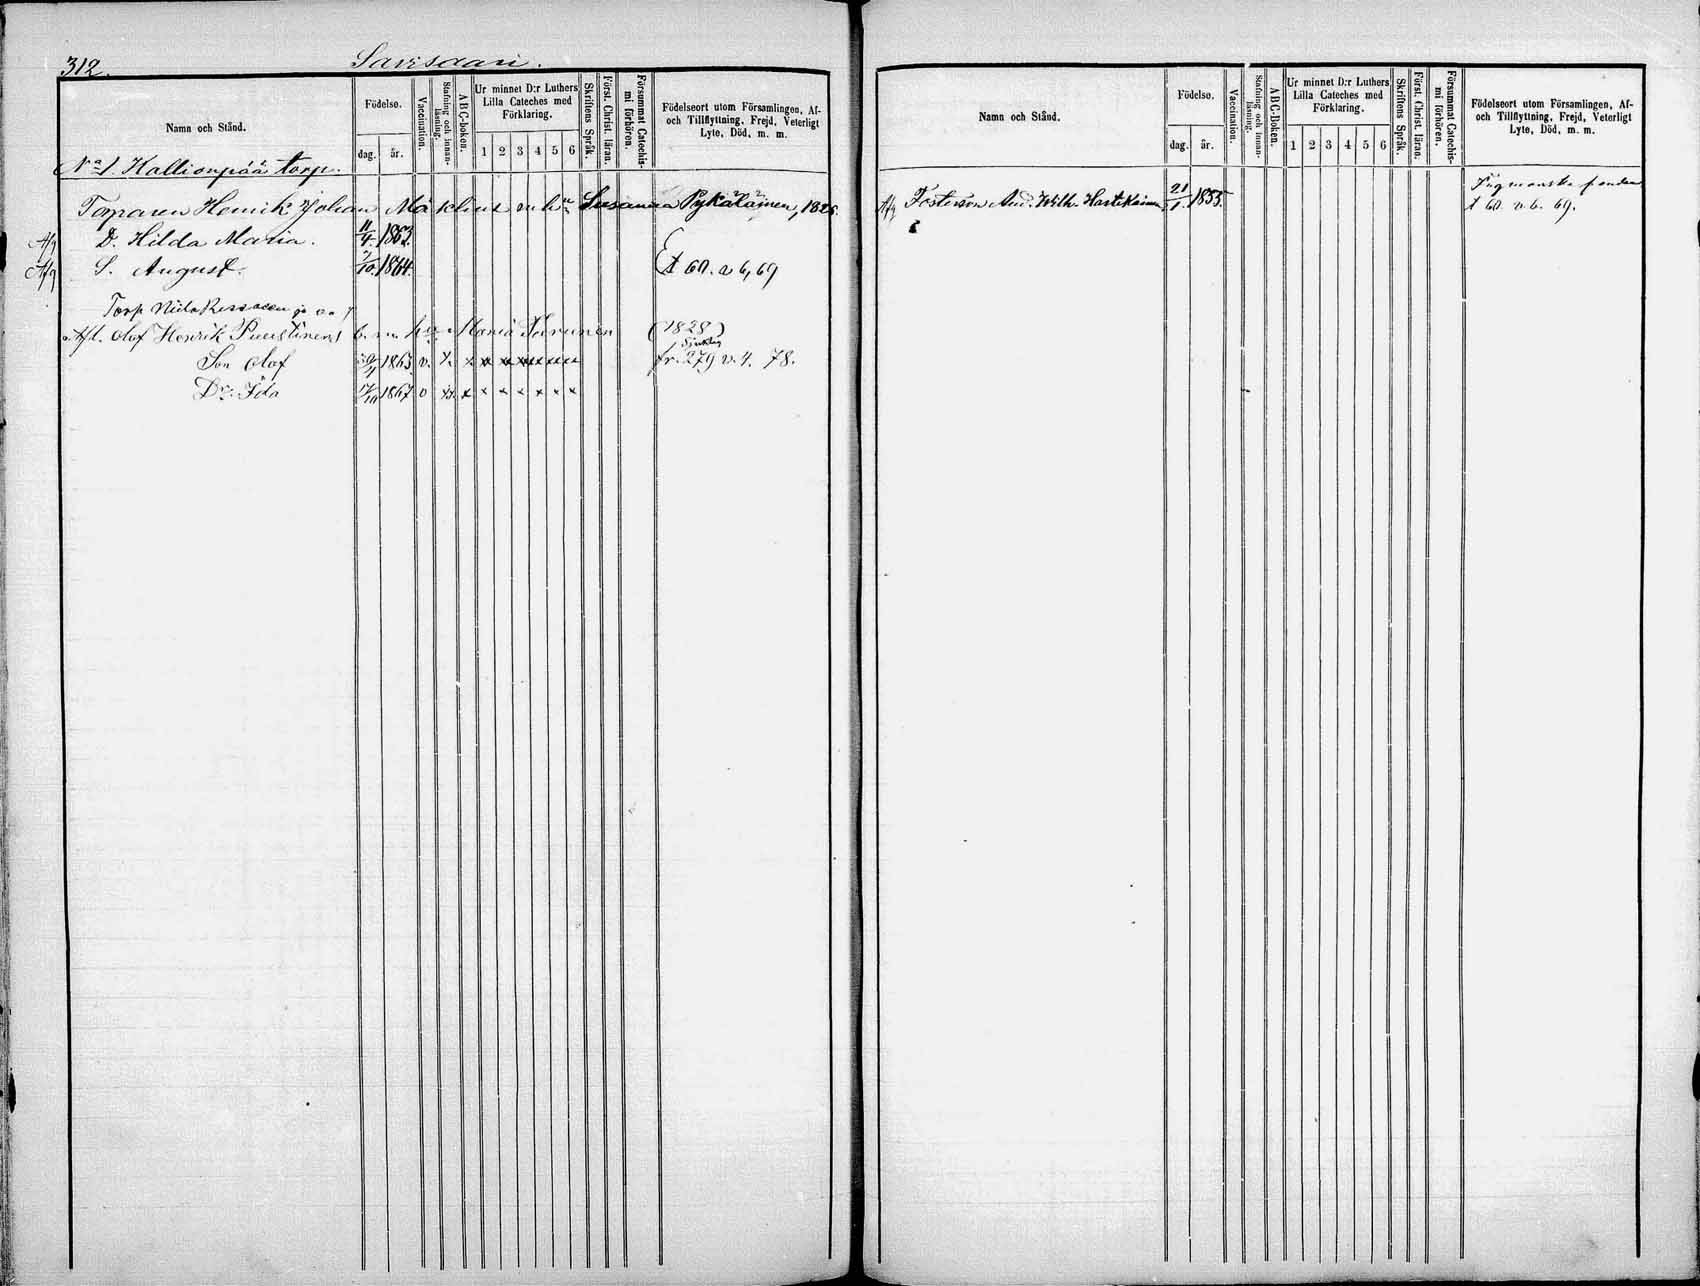 312.
Savisaari.
Namn och Stånd.
Födelse.
dag. år.
Vaccination.
Stafning och innanläsning.
ABC-boken.
Ur minnet D:r Luthers Lilla Cateches med Förklaring.
1 2 3 4 5 6
Skriftens Språk.
Först. Christ. läran.
Försummat Catechismi förhören.
Födelseort utom Församlingen, Af- och Tillflyttning, Frejd, Veterligt Lyte, Död, m. m.
No 1. Kallionpää torp.
Torparen Henrik Johan Mäsklius m. h. Susanna Pykäläinen, 1826.
Afg D. Hilda Maria. 11/4. 1862.
Afg S. August. 7/10. 1864. t 60. a 6, 69
Torp
Afl. Olof Henrik Puustinens E. m. Maria (1828)
Son Olof 1863. v. x x x x x x x x fr. 279 v. 4. 78.
Dr. Ida 1867 v x x x x x x x
Namn och Stånd.
Födelse.
dag. år.
Vaccination.
Stafning och innanläsning.
ABC-Boken.
Ur minnet D:r Luthers Lilla Cateches med Förklaring.
1 2 3 4 5 6
Skriftens Språk.
Först. Christ. läran.
Försummat Catechismi förhören.
Födelseort utom Församlingen, Af- och Tillflyttning, Frejd, Veterligt Lyte, Död, m. m.
Afg Fosterson And. Wilh. Hartikainen 21/1. 1855.
t 60. v. 6. 69.